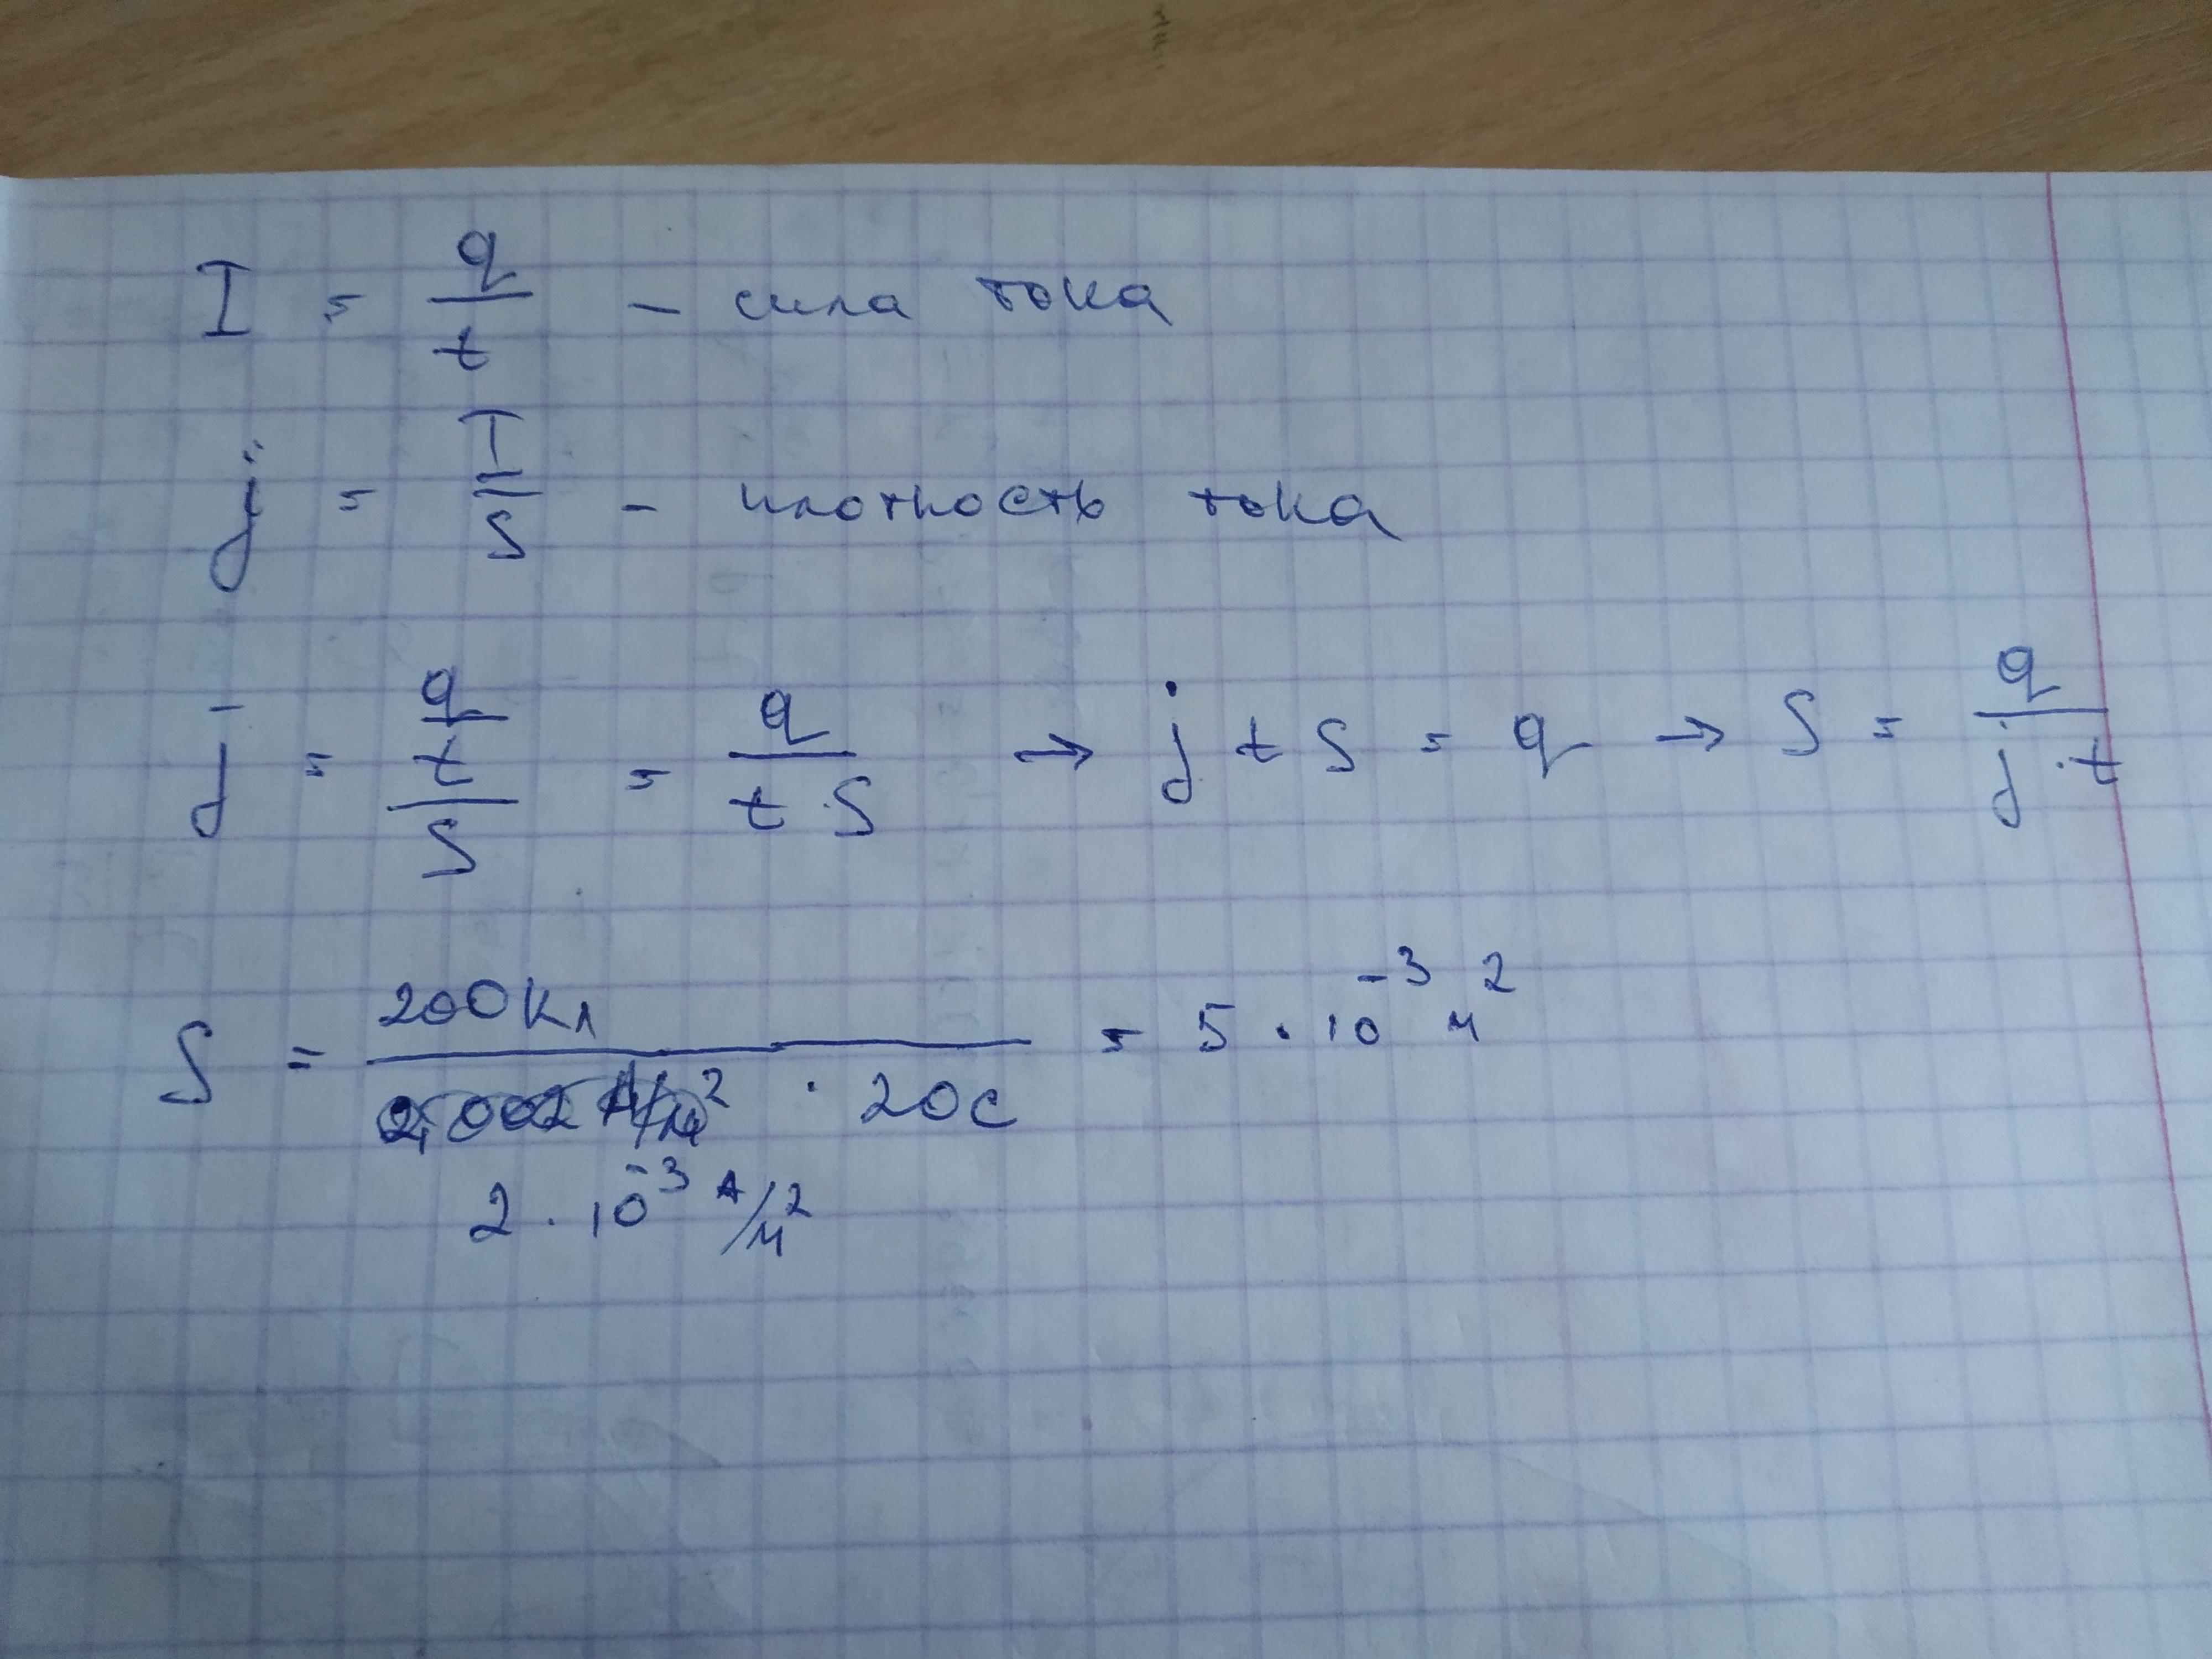 I = q/t - сила тока
j = I/S - плотность тока
j = q/t/S = q/t·S → j t S = q → S = q/j·t
S = 200Кл/2,002 А/м² · 20с = 5 · 10⁻³ м²
2 · 10⁻³ А/м²